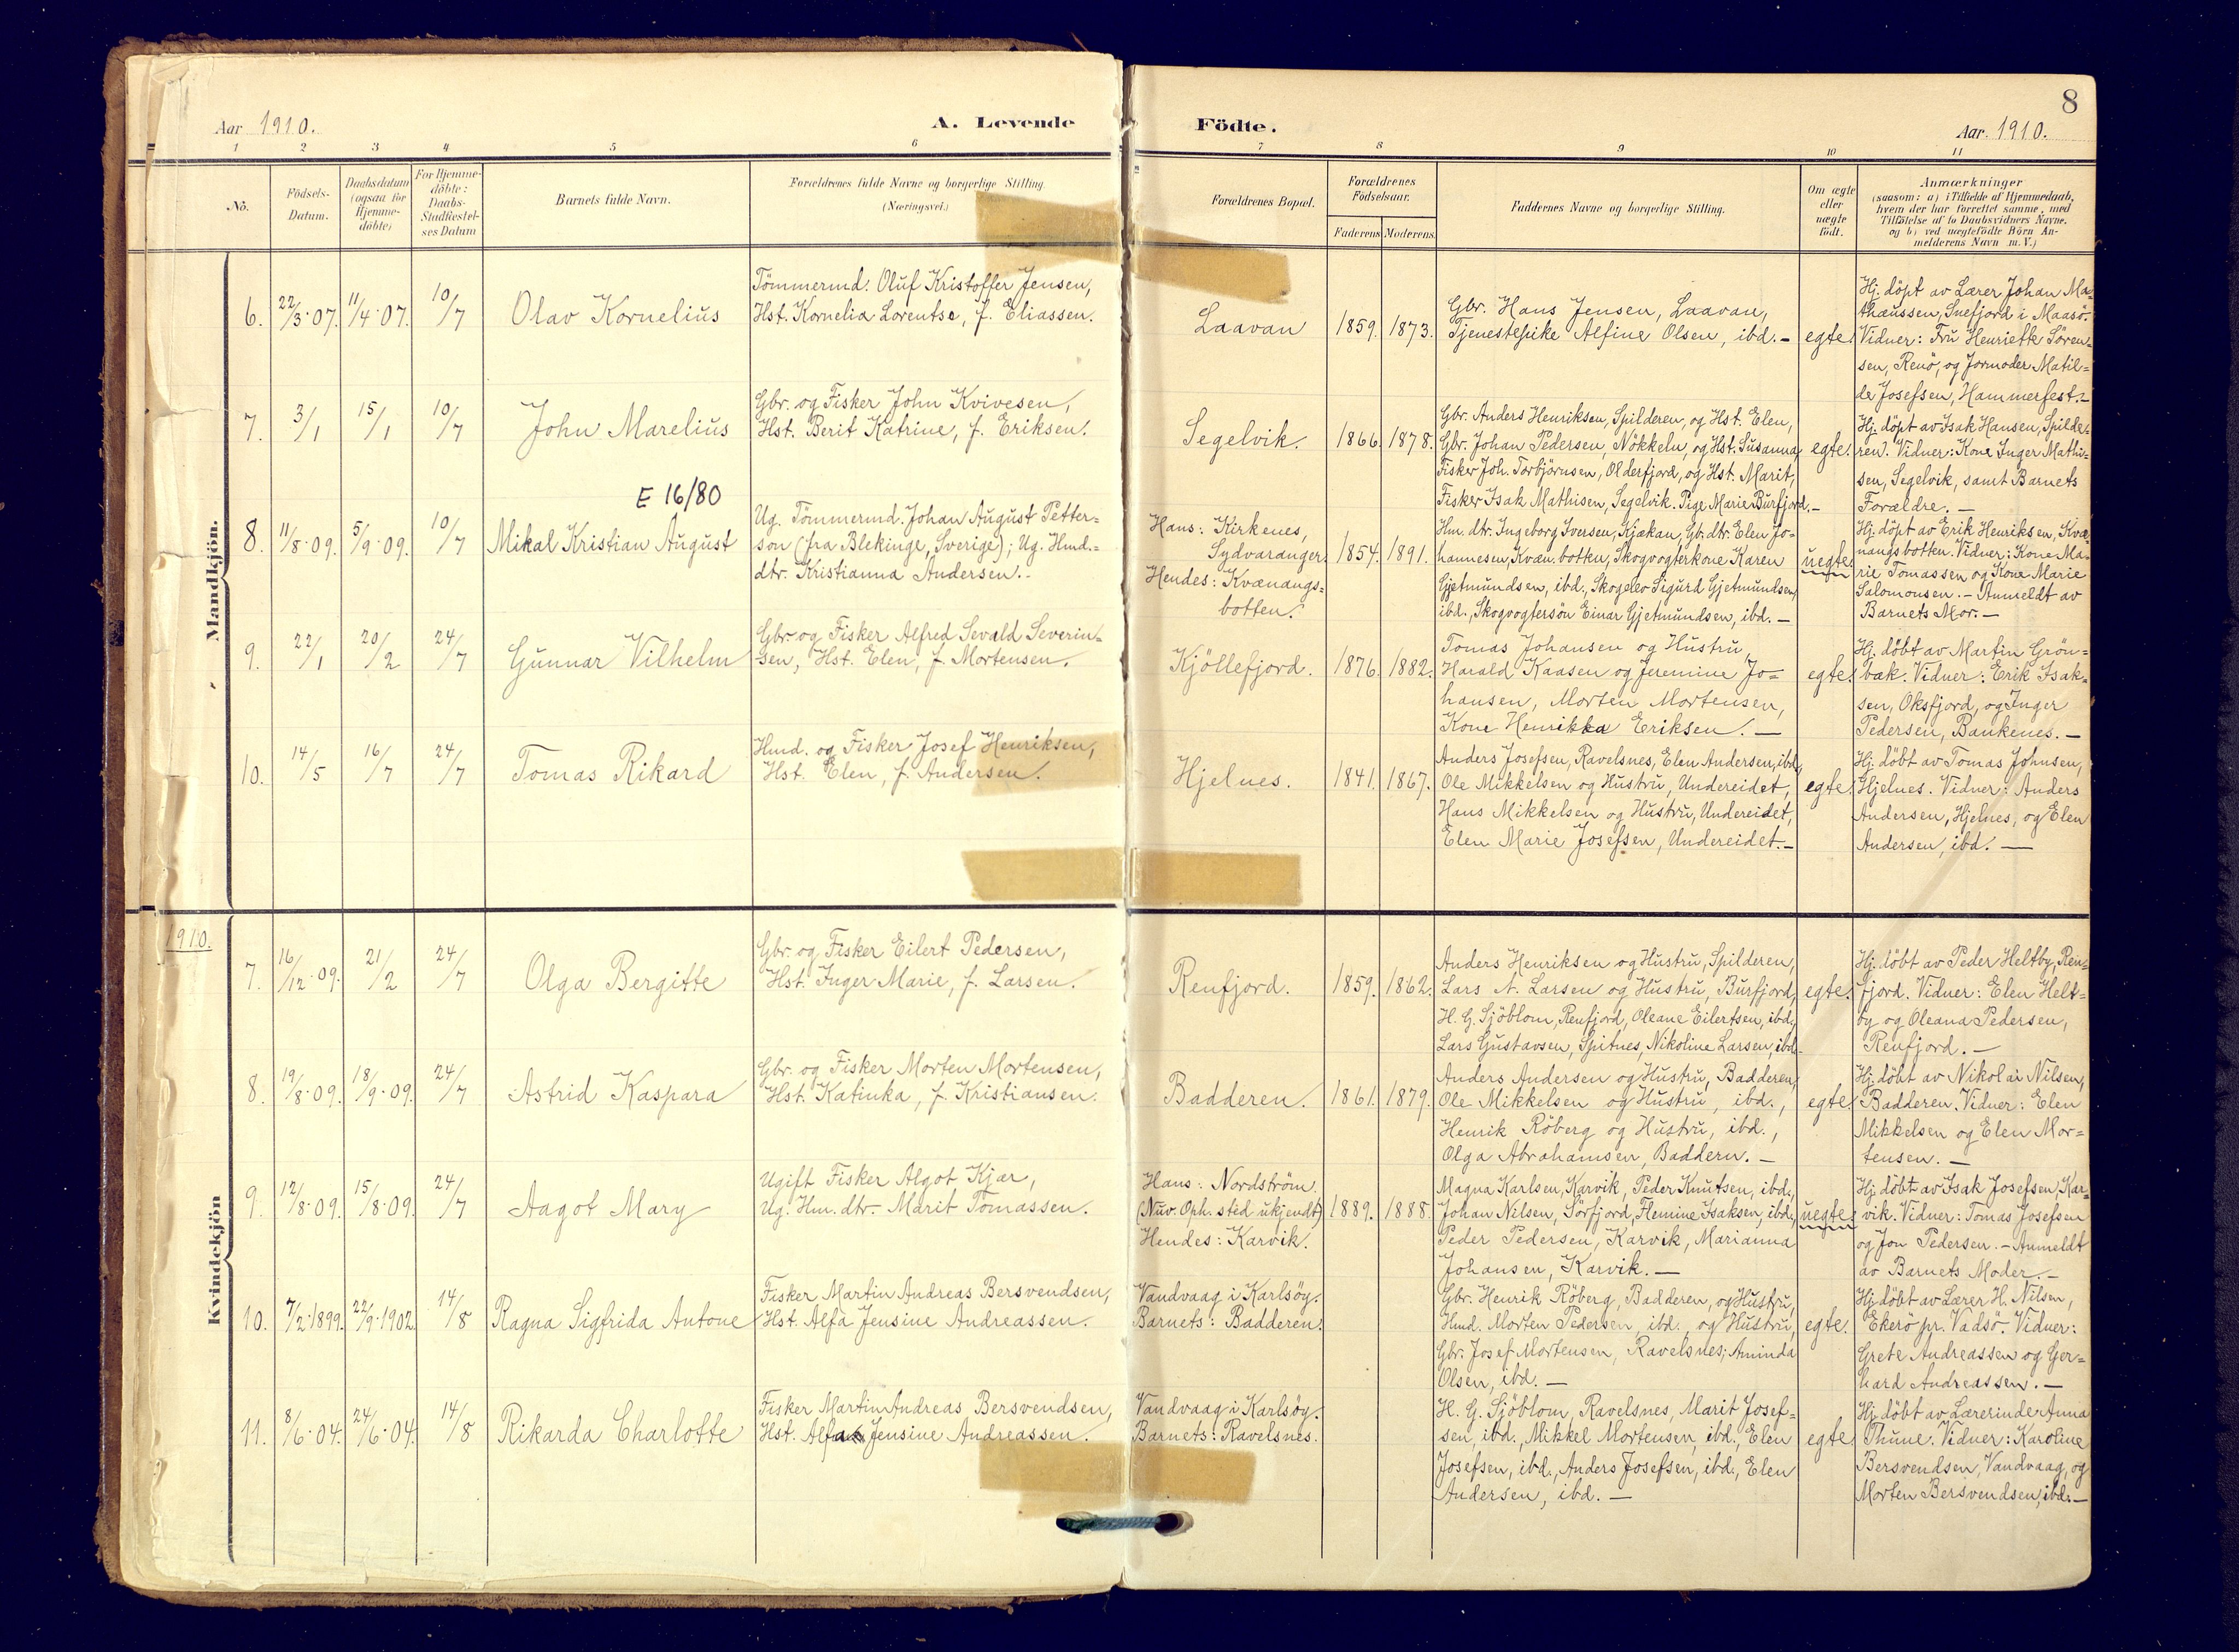 8
Aar 1910.
A. Levende
Födte.
Aar 1910.
1 2 3 4 5 6 7 8 9 10 11
No.
Födsels-
Datum.
Daabsdatum
(ogsaa for
Hjemme-
döbte)
For Hjemme-
döbte:
Daabs-
Stadfæstel-
ses Datum
Barnets fulde Navn.
Forældrenes fulde Navne og borgerlige Stilling.
(Næringsvei.)
Forældrenes Bopæl.
Forældrenes
Födselsaar.
Faderens
Moderens.
Faddernes Navne og borgerlige Stilling.
Om ægte
eller
uægte
födt.
Anmærkninger
(saasom: a) i Tilfælde af Hjemmedaab,
hvem der har forrettet samme, med
Tilföielse af to Daabsvidners Navne,
og b) ved uægtefödte Börn An-
melderens Navn m. V.)
Mandkjön.
6.
22/3·07.
11/4·07.
10/7
Olav Kornelius
Tömmermd. Oluf Kristoffer Jensen,
Hst. Kornelia Lorentse, f. Eliassen.
Laavan
1859.
1873.
Gbr. Hans Jensen, Laavan,
Tjenestepike Alfine Olsen, ibd.–
egte.
Hj. döpt av Lærer Johan Ma-
thæussen, Snefjord i Maasö.
Vidner: Fru Henriette Sören-
sen, Renö, og Jormoder Matil-
de Josefsen, Hammerfest.–
7.
3/1
15/1
10/7
John Marelius
Gbr. og Fisker John Kvivesen,
Hst. Berit Katrine, f. Eriksen.
Segelvik.
1866.
1878.
Gbr. Anders Henriksen, Spilderen, og Hst. Elen,
Gbr. Johan Pedersen, Nökkeln, og Hst. Susanna,
Fisker Joh. Torbjörnsen, Olderfjord, og Hst. Marit,
Fisker Isak Mathisen, Segelvik. Pige Marie Burfjord.–
egte.
Hj. döpt av Isak Hansen, Spilde-
ren). Vidner: Kone Inger Mathi-
sen, Segelvik, samt Barnets
Forældre.–
E 16/80
8.
11/8·09.
5/9·09.
10/7
Mikal Kristian August
Ug. Tömmermd. Johan August Petter-
son (fra Blekinge, Sverige); Ug. Hmd.-
dtr. Kristianna Andersen.
Hans: Kirkenes,
Sydvaranger.
Hendes: Kvænangs-
botten.
1854.
1891.
Hm. dtr. Ingeborg Iversen, Kjækan, Gb. dtr. Elen Jo-
hannesen, Kvæn. botten, Skogvogterkone Karen
Gjetmundsen, ibd., Skogelev Sigurd Gjetmundsen,
ibd., Skogvogtersön Einar Gjetmundsen, ibd.–
uegte.
Hj. döpt av Erik Henriksen, Kvæ-
nangsbotten. Vidner: Kone Ma-
rie Tomassen og Kone Marie
Salomonsen.– Anmeldt av
Barnets Mor.–
9.
22/1
20/2
24/7
Gunnar Vilhelm
Gbr. og Fisker Alfred Sevald Severin-
sen, Hst. Elen, f. Mortensen.
Kjöllefjord.
1876.
1882.
Tomas Johansen og Hustru,
Harald Kaasen og Jeremine Jo-
hansen, Morten Mortensen,
Kone Henrikka Eriksen.–
egte.
Hj. döbt av Martin Grön-
bæk. Vidner: Erik Isak-
sen, Oksfjord, og Inger
Pedersen, Bankenes.–
10.
14/5
16/7
24/7
Tomas Rikard
Hmd. og Fisker Josef Henriksen,
Hst. Elen, f. Andersen.
Hjelnes.
1841.
1867.
Anders Josefsen, Ravelsnes, Elen Andersen, ibd.,
Ole Mikkelsen og Hustru, Undereidet,
Hans Mikkelsen og Hustru, Undereidet,
Elen Marie Josefsen, Undereidet.–
egte.
Hj. döbt av Tomas Johnsen,
Hjelnes. Vidner: Anders
Andersen, Hjelnes, og Elen
Andersen, ibd.–
1910.
Kvindekjön
7.
16/12·09.
21/2
24/7
Olga Bergitte
Gbr. og Fisker Eilert Pedersen,
Hst. Inger Marie, f. Larsen.
Renfjord.
1859.
1862.
Anders Henriksen og Hustru, Spilderen,
Lars N. Larsen og Hustru, Burfjord,
H. G. Sjöblom, Renfjord, Oleane Eilertsen, ibd.,
Lars Gustavsen, Spitnes, Nikoline Larsen, ibd.
egte.
Hj. döbt av Peder Heltby, Ren-
fjord. Vidner: Elen Helt-
by og Oleana Pedersen,
Renfjord.–
8.
19/8·09.
18/9·09.
24/7
Astrid Kaspara
Gbr. og Fisker Morten Mortensen,
Hst. Katinka, f. Kristiansen.
Badderen.
1861.
1879.
Anders Andersen og Hustru, Badderen,
Ole Mikkelsen og Hustru, ibd.,
Henrik Röberg og Hustru, ibd.,
Olga Abrahamsen, Baddern.–
egte.
Hj. döbt av Nikolai Nilsen,
Badderen. Vidner: Elen
Mikkelsen og Elen Mor-
tensen.–
9.
12/8·09.
15/8·09.
24/7
Aagot Mary
Ugift Fisker Algot Kjær,
Ug. Hm. dtr. Marit Tomassen.
Hans: Nordström.
(Nuv. Oph. sted ukjendt)
Hendes: Karvik.
1889.
1888.
Magna Karlsen, Karvik, Peder Knutsen, ibd.,
Johan Nilsen, Sörfjord, Flemine Isaksen, ibd.,
Peder Pedersen, Karvik, Marianna
Johansen, Karvik.–
uegte.
Hj. döbt av Isak Josefsen, Kar-
vik. Vidner: Tomas Josefsen
og Jon Pedersen.– Anmeldt
av Barnets Moder.–
10.
7/2·1899.
22/9·1902.
14/8
Ragna Sigfrida Antone
Fisker Martin Andreas Bersvendsen,
Hst. Alfa Jensine Andreassen.
Vandvaag i Karlsöy.
Barnets: Badderen.
Gbr. Henrik Röberg, Badderen, og Hustru,
Hmd. Morten Pedersen, ibd., og Hustru,
Gbr. Josef Mortensen, Ravelsnes; Aminda
Olsen, ibd.–
egte.
Hj. döbt av Lærer H. Nilsen,
Ekerö pr. Vadsö. Vidner:
Grete Andreassen og Ger-
hard Andreassen.–
11.
8/6·04.
24/6·04.
14/8
Rikarda Charlotte
Fisker Martin Andreas Bersvendsen,
Hst. Alfa Jensine Andreassen.
Vandvaag i Karlsöy.
Barnets: Ravelsnes.
H. G. Sjöblom, Ravelsnes, Marit Josef-
sen, ibd., Mikkel Mortensen, ibd., Elen
Josefsen, ibd., Anders Josefsen, ibd., Elen
Andersen, ibd.–
egte.
Hj. döbt av Lærerinde Anna
Thune. Vidner: Karoline
Bersvendsen, Vandvaag, og
Morten Bersvendsen, ibd.–